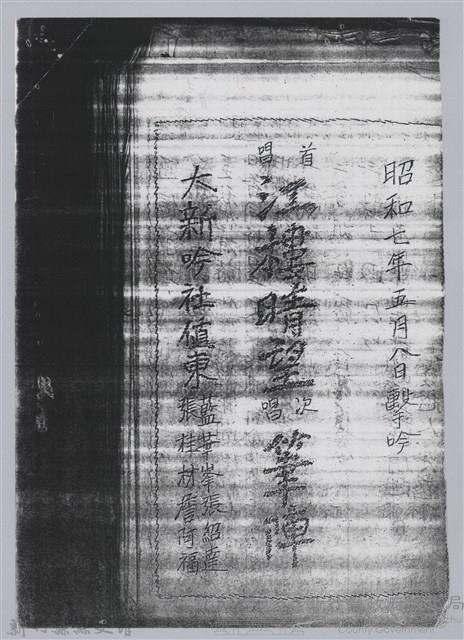 昭和七年五月八日擊吟
首唱 江樓晴望 次唱 筆陣
大新吟社値東 藍華峯 張紹達
張桂材 詹向福
局
County Government